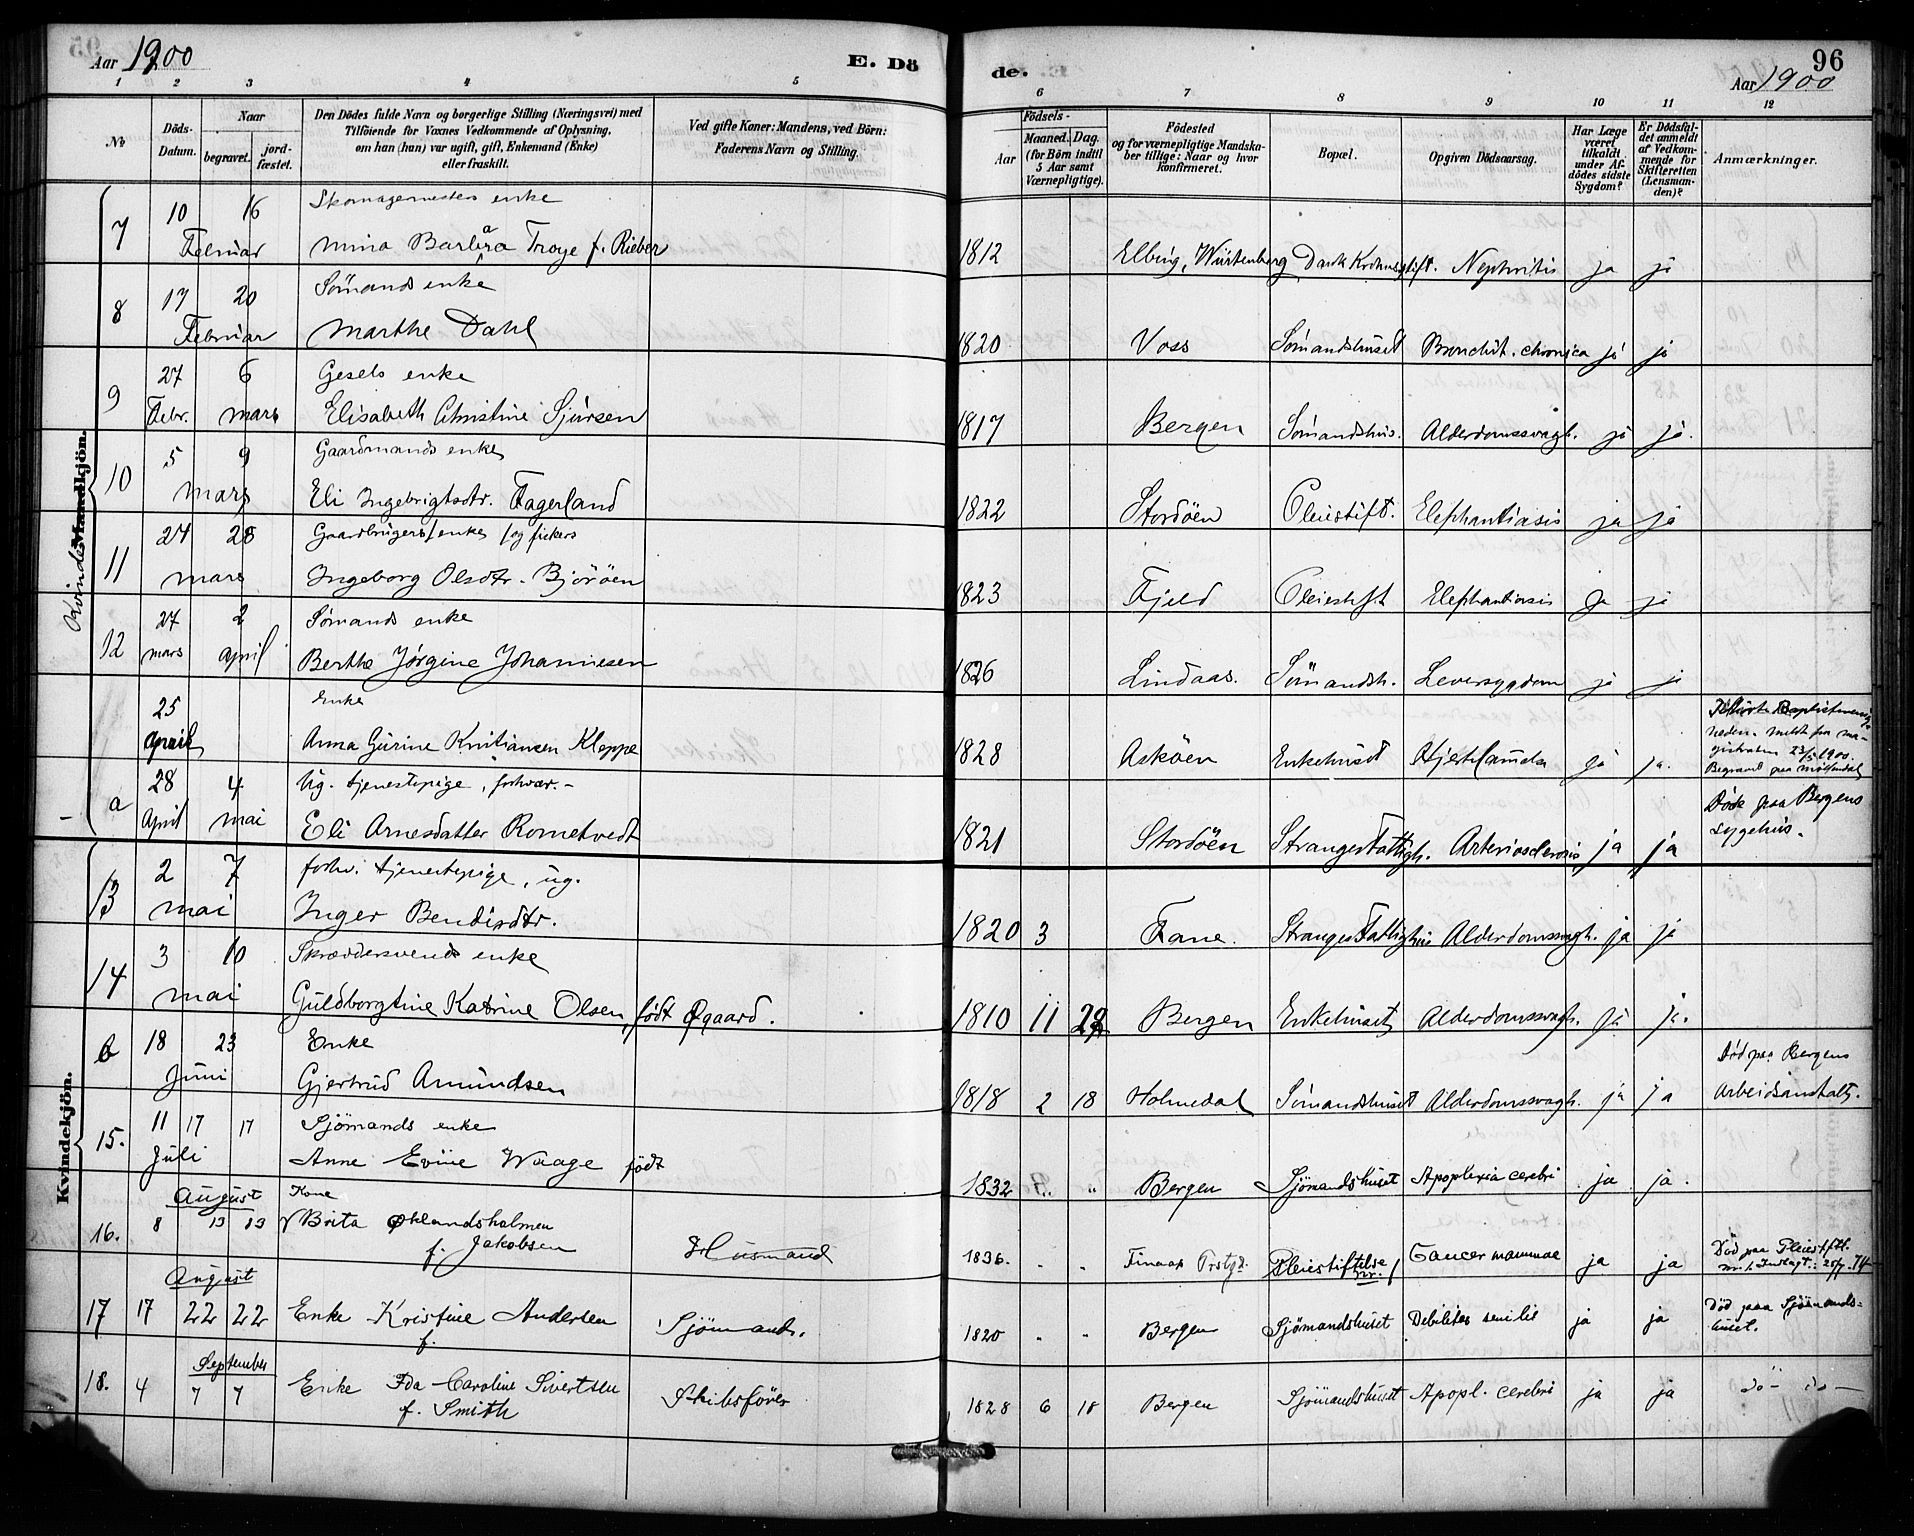 Aar 1900
E. Dö
de.
96
Aar 1900
1 2 3 4 5 6 7 8 9 10 11 12
No
Döds-Datum.
Naar
begravet.
jord-fæstet.
Den Dödes fulde Navn og borgerlige Stilling (Næringsvei) med
Tilföiende for Voxnes Vedkommende af Oplysning,
om han (hun) var ugift, gift, Enkemand (Enke)
eller fraskilt.
Ved gifte Koner: Mandens, ved Börn:
Faderens Navn og Stilling.
Födsels-
Aar
Maaned. Dag.
(for Börn indtil
5 Aar samt
Værnepligtige).
Födested
og for værnepligtige Mandska-
ber tillige: Naar og hvor
konfirmeret.
Bopæl.
Opgiven Dödsaarsag.
Har Læge
været
tilkaldt
under Af-
dödes sidste
Sygdom?
Er Dödsfal-
det anmeldt
af Vedkom-
mende for
Skifteretten
(Lensman-
den)?
Anmærkninger.
Kvinde Mandkjön.
7 10 16 Februar Skomagermesters enke
Mina Barbara Troye f. Rieber 1812 Elbing, Würtenberg Danckert Krohns stift. Nephritis ja ja
8 17 20 Februar Sömands enke
Marthe Dahl 1820 Voss Sömandshuset Bronchit. chronica ja ja
9 27 Febr. 6 mars Gesels enke
Elisabeth Christine Sjursen 1817 Bergen Sömandshus. Alderdomssvagh. ja ja.
10 5 9 mars Gaardmands enke
Eli Ingebrigtsdtr. Fagerland 1822 Stordöen Pleiestift. Elephantiasis ja ja
11 24 28 mars Gaardbrugers enke /og fiskers
Ingeborg Olsdtr. Björöen 1823 Fjeld Pleiestift Elephantiasis ja ja
12 27 mars 2 april Sömands enke
Berthe Jørgine Johannesen 1826 Lindaas. Sömandsh. Leversygdom ja ja
25 april Enke
Anna Gurine Kristiansen Kleppe 1828 Asköen Enkehuset Hjertelamelse ja ja.
Baptistmenig-
heden. Meldt fra ma-
gistraten 23/5 1900.
Begravet paa Möllendal
a 28 april 4 mai Ug. tjenestepige, forhvær.-
Eli Arnesdatter Rometvedt 1821 Stordöen Stranges Fattigh. Arteriosclerosis ja ja
Död paa Bergens
sygehus.
Kvindekjön.
13 2 7 mai forhv. tjenestepige, ug.
Inger Bendixdtr. 1820 3 Fane. Stranges Fattighus Alderdomssvagh. ja ja
14 3 10 mai Skræddersvends enke
Guldborgtine Katrine Olsen, födt Øgaard. 1810 11 Bergen Enkehuset Alderdomssvagh. ja ja.
b 18 23 Juni Enke
Gjertrud Amundsen 1818 2 18 Holmedal Sömandshuset Alderdomssvagh. ja ja
Död paa Bergens
Arbeidsanstalt.
15. 11 17 17 Juli Sjömands enke
Anne Evine Waage födt 1832 " " Bergen Sjömandshuset Apoplexia cerebri ja ja.
16. August 8 13 13 Kone
Brita Øklandsholmen
f. Jakobsen Husmand 1836. " " Finaas Prstgd. Pleiestiftelse nr. 1 Cancer mammae ja ja
Död paa Pleiestft.
nr. 1. Indlagt: 25/9. 74
17 August 17 22 22 Enke Kristine Andersen
f. Sjömand. 1820 " " Bergen Sjömandshuset Debilitas senilis ja ja
Död paa Sjömands-
huset.
18. September 4 7 7 Enke Ida Caroline Sivertsen
f. Smith Skibsförer 1828 6 18 Bergen Sjömandshuset Apopl. cerebri ja ja
do- do-